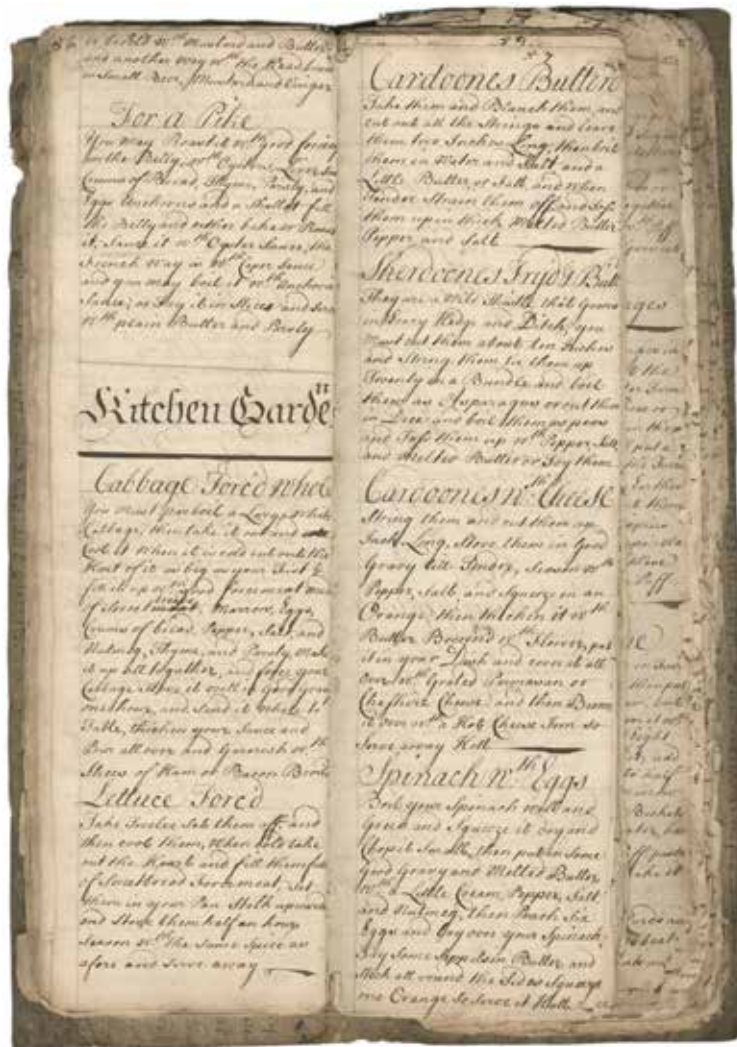 86 or boild wth Mustard and Butter
and another way wth the Head burn
in Small Beer, Mustard and Ginger
For a Pike
You may Roast it wth Good forcing
in the Belly, wth Oysters, Liver,
Crums of Bread, Thyme, Parsly, and
Eggs Anchoves and a Shallot fill
the Belly and either bake or Roast
it, Sauce it wth Oyster Sauce, the
French way is wth Caper Sauce
and you may boil it wth Anchove
Sauce, or Fry it in Slices and Serve
wth plain Butter and Parsly
Kitchen Garden
Cabbage Forc'd whole
You Must par boil a Large White
Cabbage, then take it out and
Cool it When it is cold cut out the
Heart of it as big as your Fist &
fill it up wth good forcemeat Made
of Sweetmeat, Marrow, Eggs,
Crums of bread, Pepper, Salt, and
Nutmeg, Thyme, and Parsly Make
it up all together, and force your
Cabbage Stove it well in Good Gravy
one hour, and Send it whole to
Table, thicken your Sauce and
Pour all over and Garnish wth
Slices of Ham or Bacon Broild
Lettuce Forc'd
Take Twelve Sett them off, and
then cool them, When cold take
out the Heart and fill them full
of Sweetbread Forcemeat, Set
them in your Pan Stalk upwards
and Stove them half an hour
Season wth the Same Spice as
afore and Serve away
87
Cardoones Butterd
Take them and Blanch them, and
cut out all the Strings and leave
them two Inches Long, then boil
them in Water and Salt and a
Little Butter, or Salt and when
Tender Strain them off and toss
them up in thick Melted Butter
Pepper and Salt
Cherdoones Fry'd & Butt
They are a Wild Thistle that Grows
in Every Hedge and Ditch, you
Must cut them about ten Inches
and String them tie them up
Twenty in a Bundle and boil
them as Asparagus or cut them
in Dice and boil them as peas
and Toss them up wth Pepper, Salt
and Melted Butter or Fry them
Cardoones wth Cheese
String them and cut them an
Inch Long, Stove them in Good
Gravy till Tender, Season wth
Pepper, Salt, and Squeeze in an
Orange then thicken it wth
Butter Browned wth Flower, put
it in your Dish and cover it all
over wth Grated Parmasan or
Cheshire Cheese and then Brown
it over wth a Hot Cheese Iron so
Serve away Hott
Spinach wth Eggs
Boil your Spinach well and
Green and Squeeze it dry and
Chop it Small, then put in Some
Good Gravy and Melted Butter
wth a Little Cream, Pepper, Salt
and Nutmeg, then Poach Six
Eggs and lay over your Spinach
Fry Some Sippets in Butter and
Stick all round the Sides Squeeze
one Orange So Serve it Hott